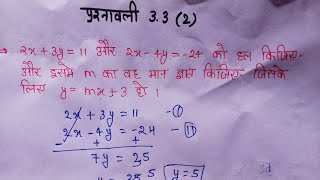 प्रश्नावली 3.3 (2)
→ 2x+3y=11 और 2x-4y=-24 को हल किजिए
और इससे m का वह मान ज्ञात किजिए जिसके
लिए y=mx+3 हो।
2x+3y=11 -①
2x-4y=-24 -⑪
- + +
7y=35
y=5